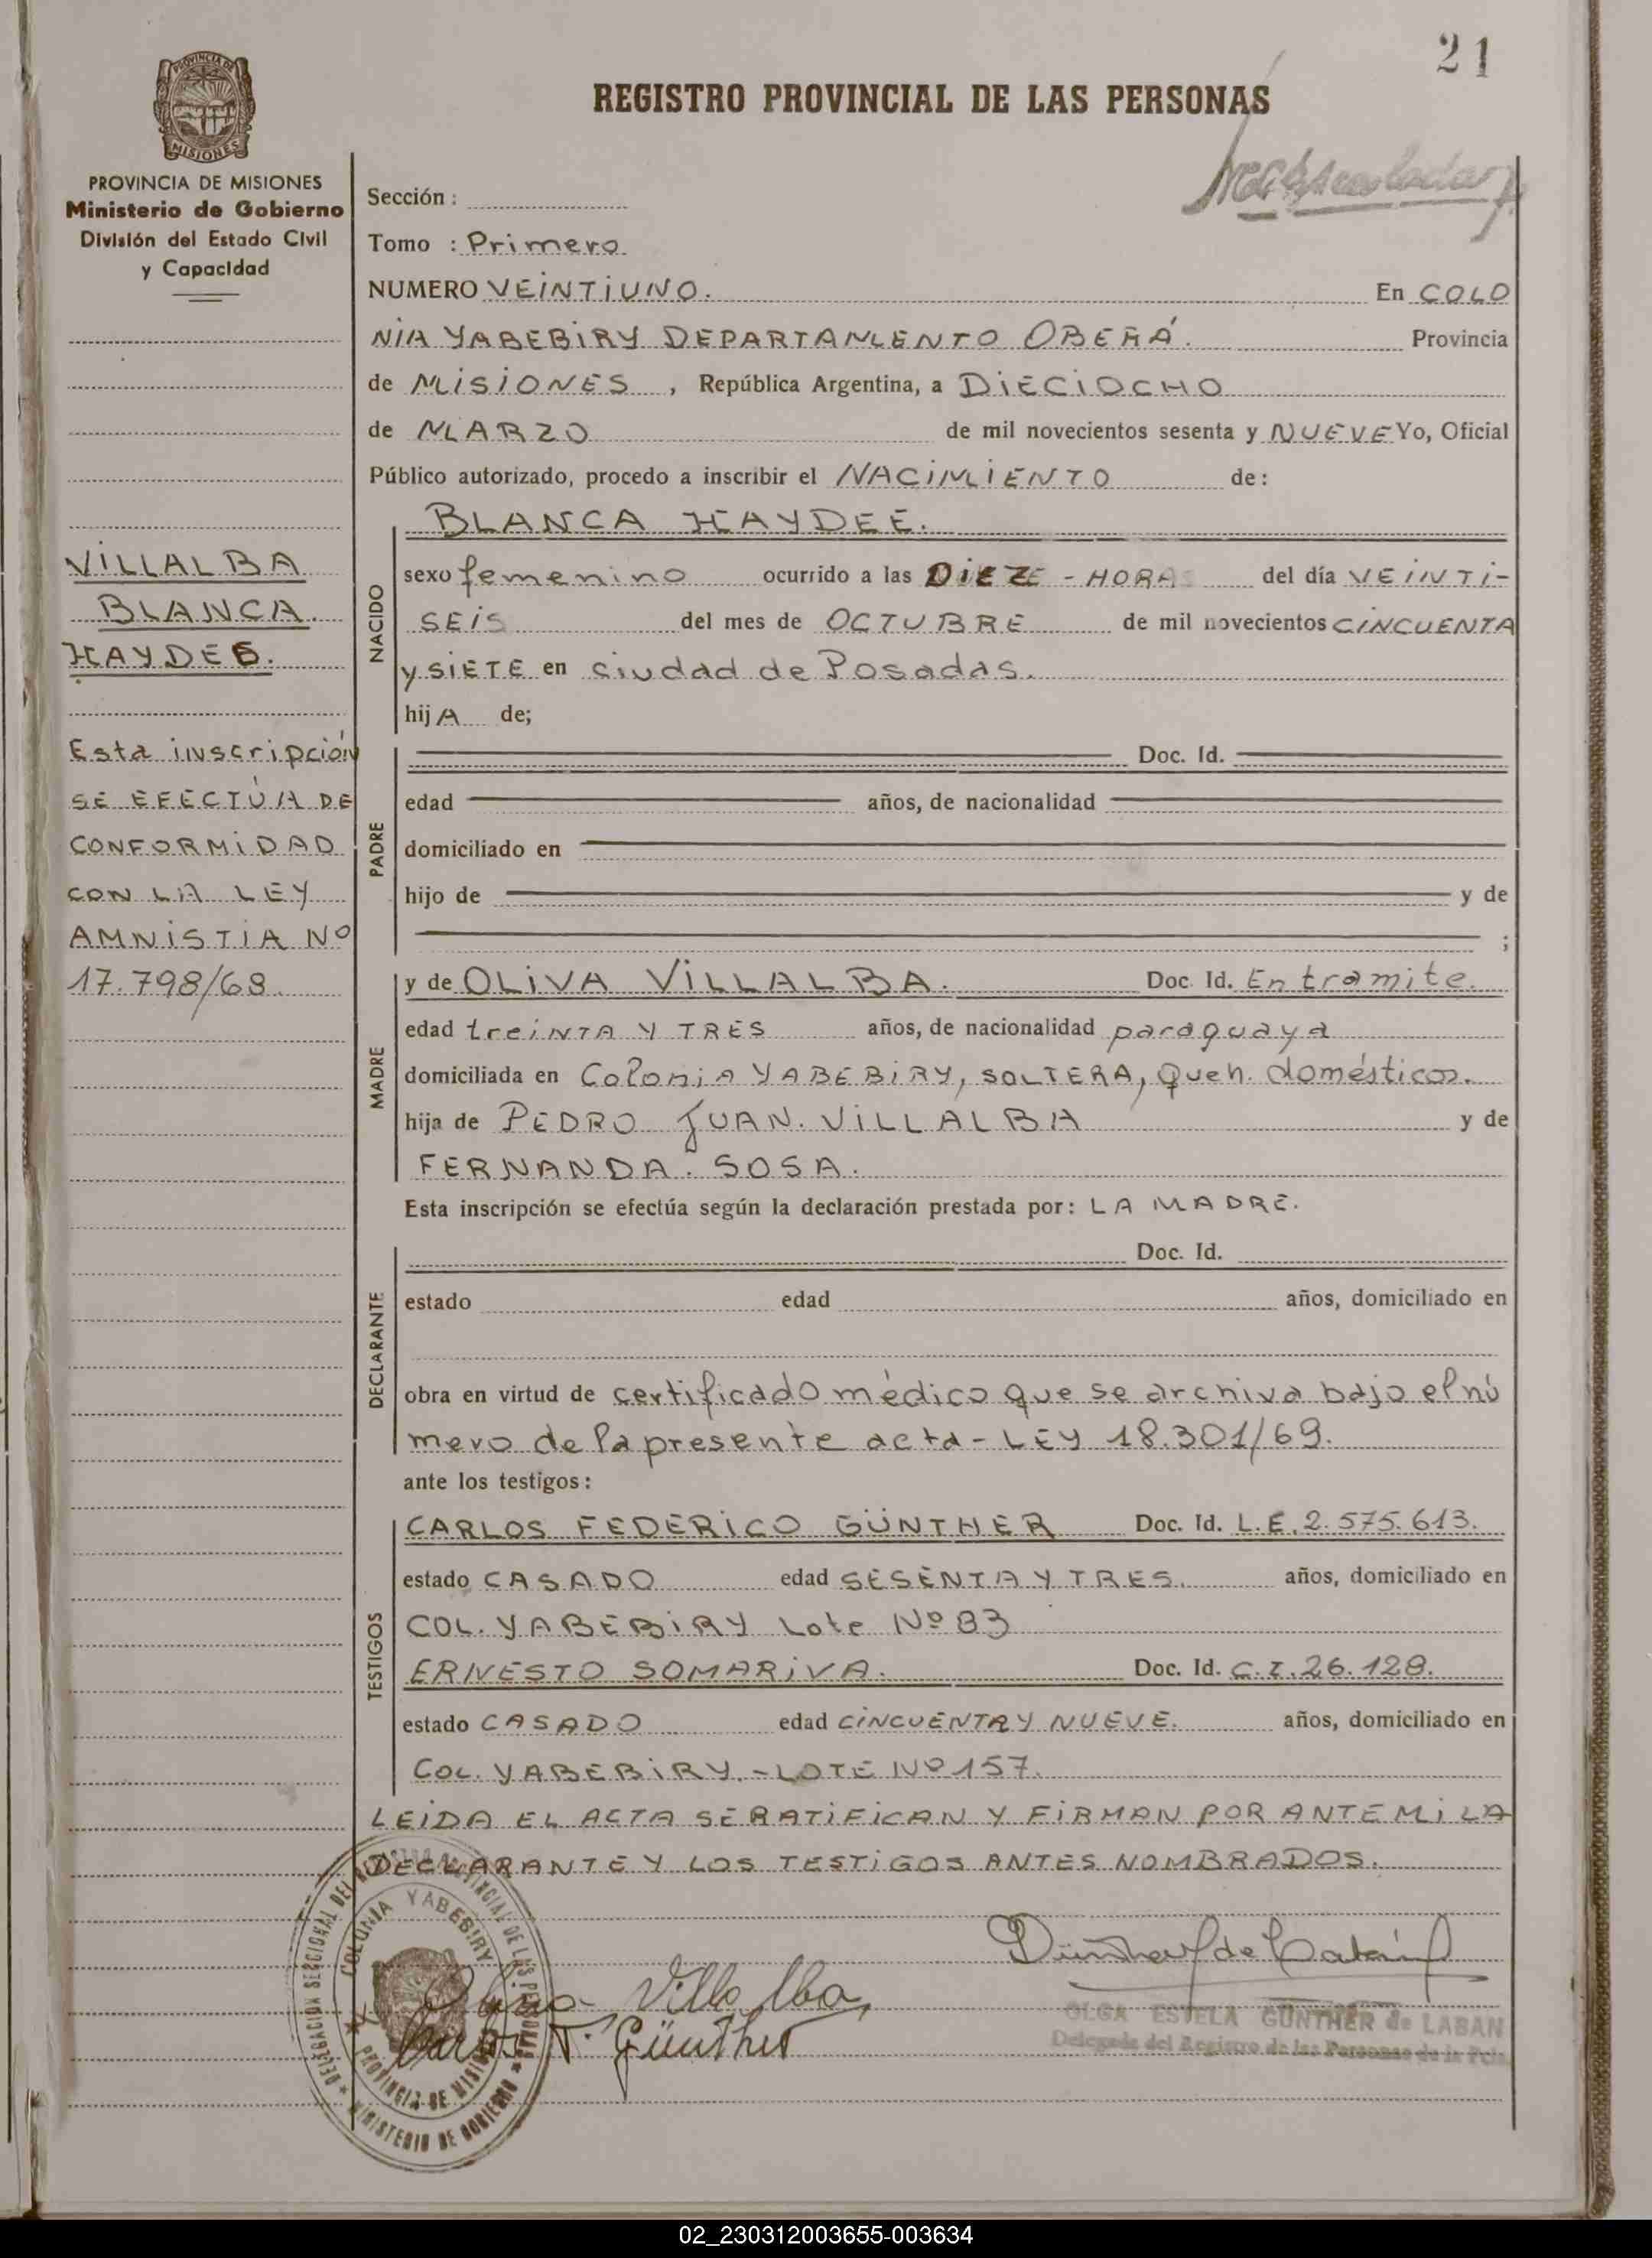 21
REGISTRO PROVINCIAL DE LAS PERSONAS
PROVINCIA DE MISIONES
MISIONES
PROVINCIA DE MISIONES
Ministerio de Gobierno
División del Estado Civil
y Capacidad
VILLALBA
BLANCA.
HAYDEE.
Esta inscripción
SE EFECTÚA DE
CONFORMIDAD
CON LA LEY
AMNISTIA Nº
17.798/68.
Sección :
Tomo : Primero
NUMERO VEINTIUNO. En COLO
NIA YABEBIRY DEPARTAMENTO OBERÁ. Provincia
de MISIONES , República Argentina, a DIECIOCHO
de MARZO de mil novecientos sesenta y NUEVE Yo, Oficial
Público autorizado, procedo a inscribir el NACIMIENTO de:
NACIDO
BLANCA HAYDEE.
sexo femenino ocurrido a las DIEZ - HORAS del día VEINTI-
SEIS del mes de OCTUBRE de mil novecientos CINCUENTA
y SIETE en ciudad de Posadas.
hijA de;
PADRE
Doc. Id.
edad años, de nacionalidad
domiciliado en
hijo de y de
;
MADRE
y de OLIVA VILLALBA. Doc. Id. En tramite.
edad treINTA Y TRES años, de nacionalidad paraguaya
domiciliada en Colonia YABEBIRY, SOLTERA, Queh. domésticos.
hija de PEDRO JUAN. VILLALBA y de
FERNANDA. SOSA.
Esta inscripción se efectúa según la declaración prestada por: LA MADRE.
DECLARANTE
Doc. Id.
estado edad años, domiciliado en
obra en virtud de certificado médico que se archiva bajo el nú
mero de la presente acta - LEY 18.301/69.
ante los testigos:
TESTIGOS
CARLOS FEDERICO GÜNTHER Doc. Id. L.E. 2.575.613.
estado CASADO edad SESENTA Y TRES. años, domiciliado en
COL. YABEBIRY Lote Nº 83
ERNESTO SOMARIVA. Doc. Id. C.I. 26.128.
estado CASADO edad CINCUENTA Y NUEVE. años, domiciliado en
COL. YABEBIRY. - LOTE Nº 157.
LEIDA EL ACTA SE RATIFICAN Y FIRMAN POR ANTE MI LA
DECLARANTE Y LOS TESTIGOS ANTES NOMBRADOS.
DELEGACION SECCIONAL DEL PROVINCIAL DE LAS PERSONAS
COLONIA YABEBIRY
PROVINCIA DE MISIONES
MINISTERIO DE GOBIERNO
Villalba
Carlos F. Günther
Günther de
OLGA ESTELA GÜNTHER de LABAN
Delegada del Registro de las Personas de la Pcia.
02_230312003655-003634